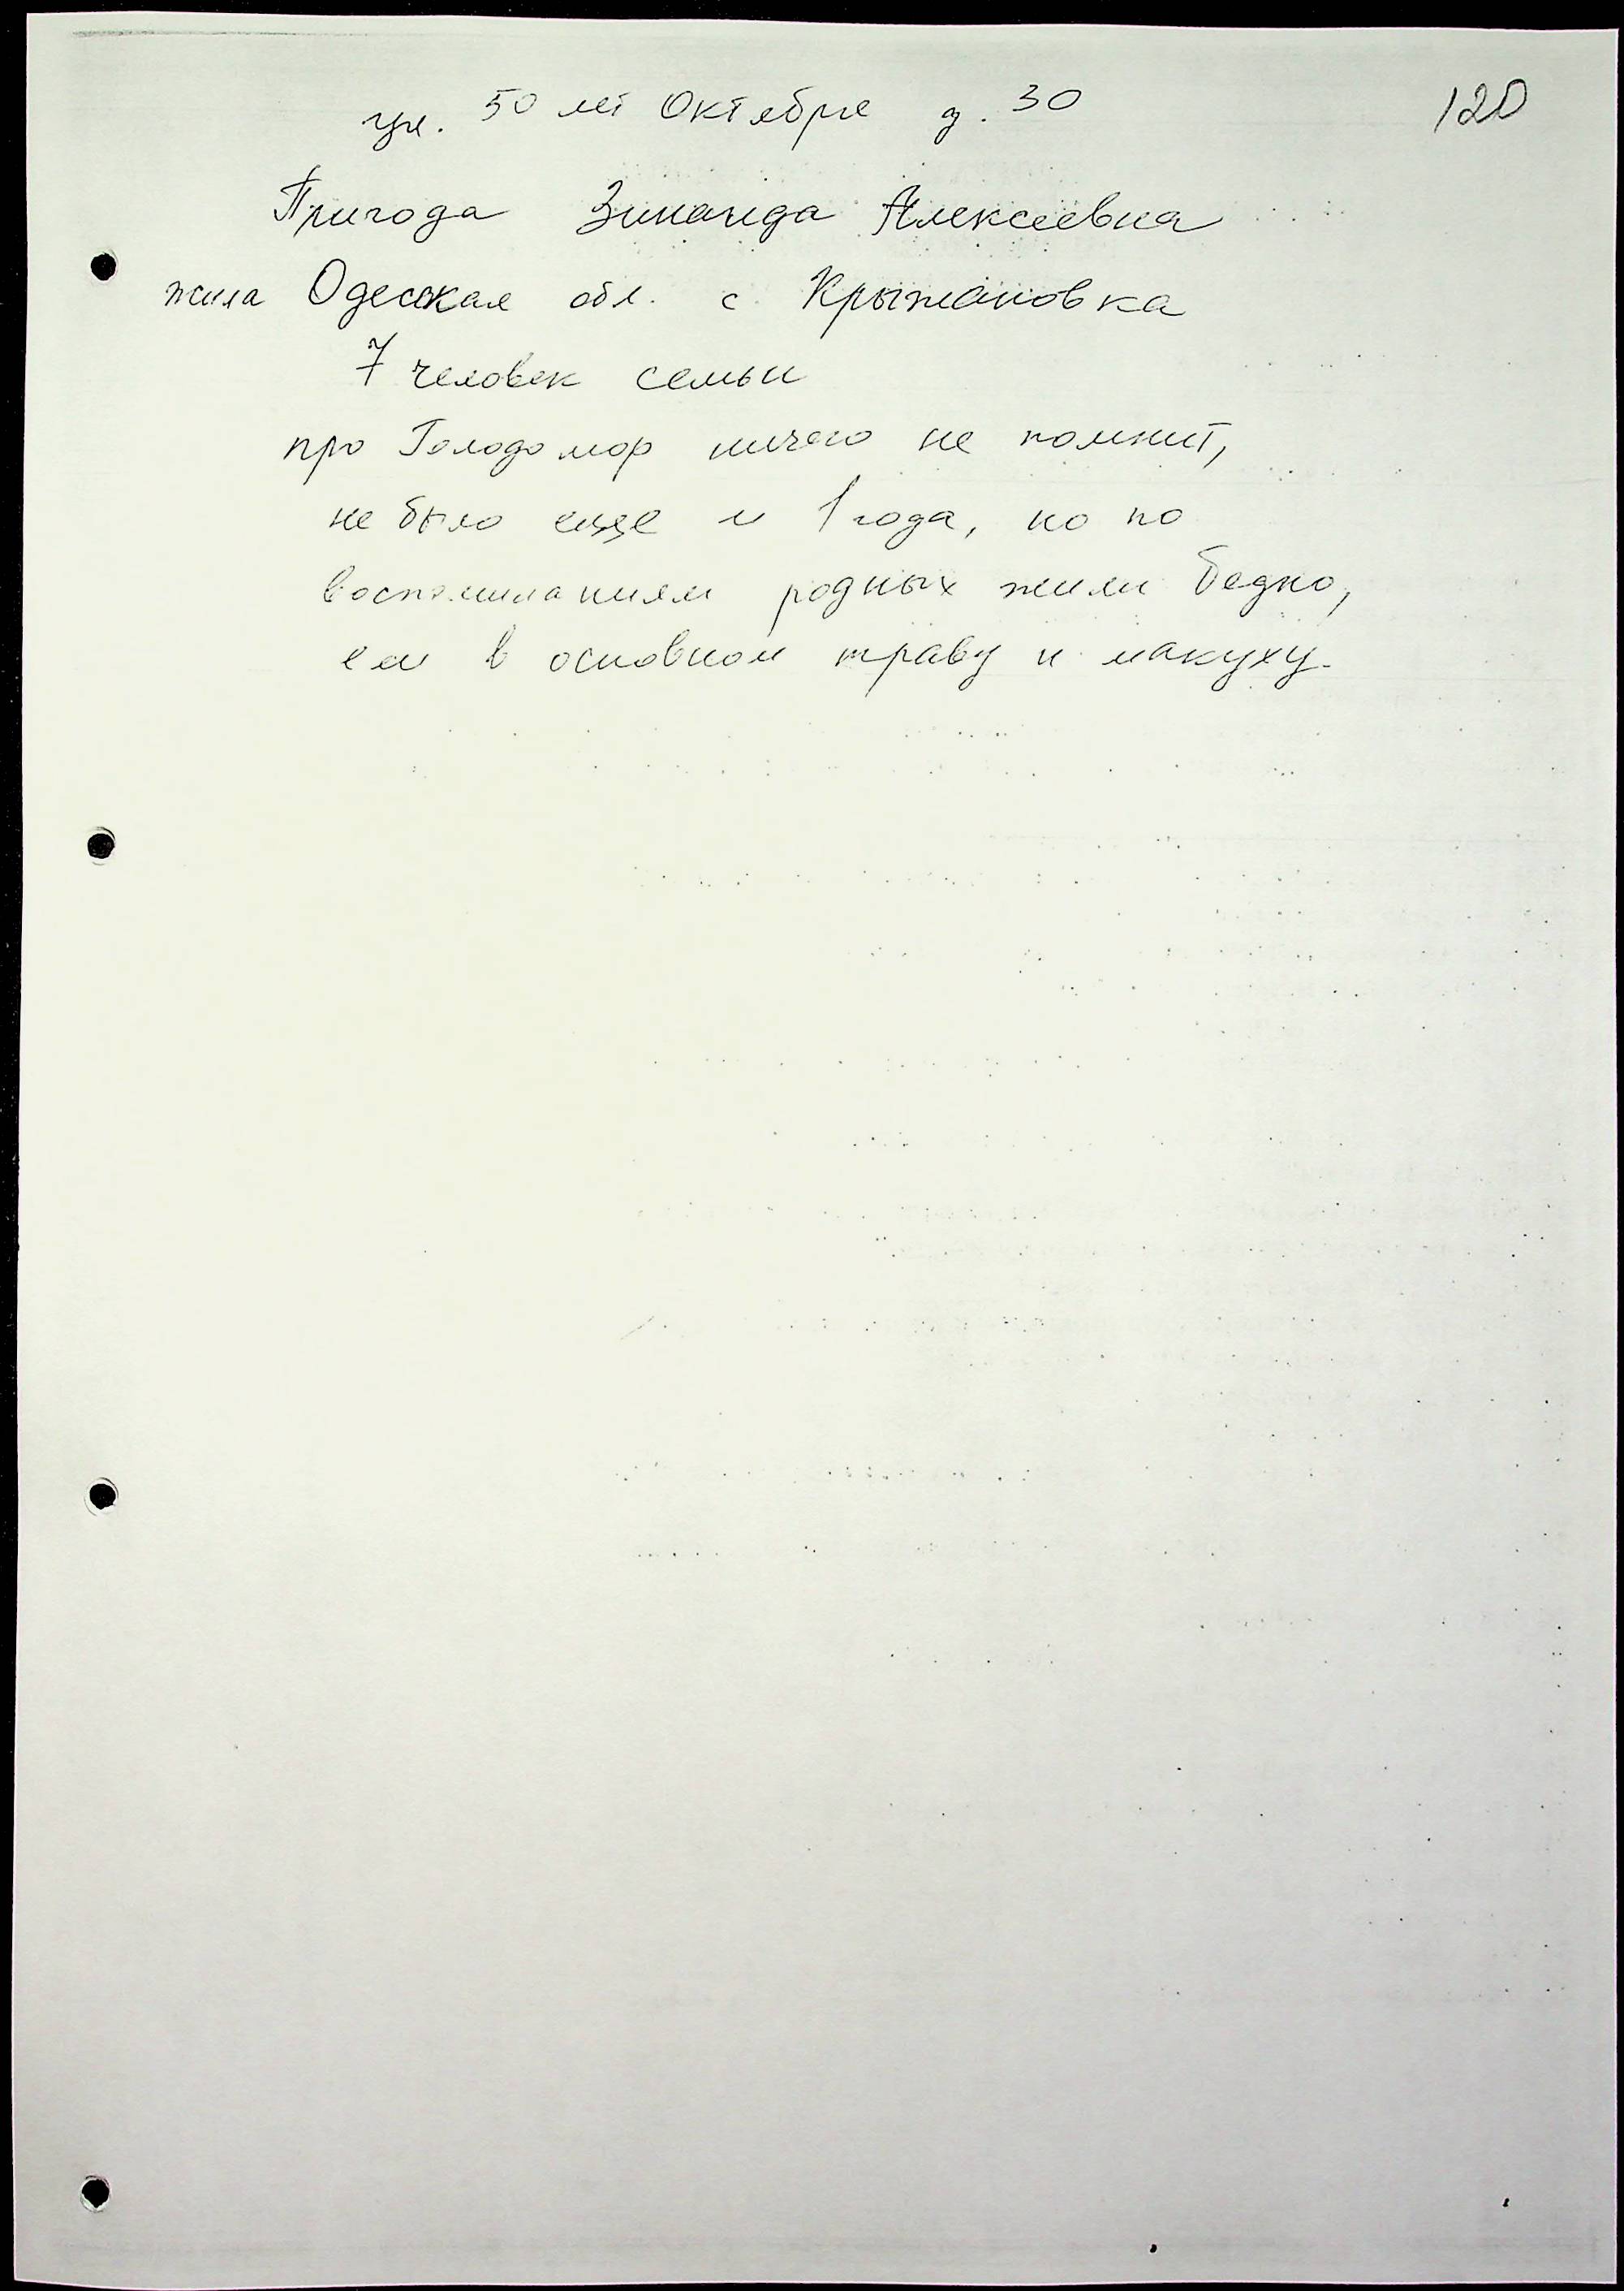 ул. 50 лет Октября д. 30
120
Пригода Зинаида Алексеевна
жила Одесская обл. с Крыжановка
7 человек семьи
про Голодомор ничего не помнит,
не было еще и 1 года, но по
воспоминаниям родных жили бедно,
ели в основном траву и макуху.